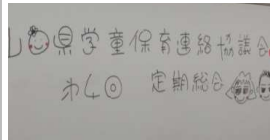 山口県学童保育連絡協議会
第40 定期総会